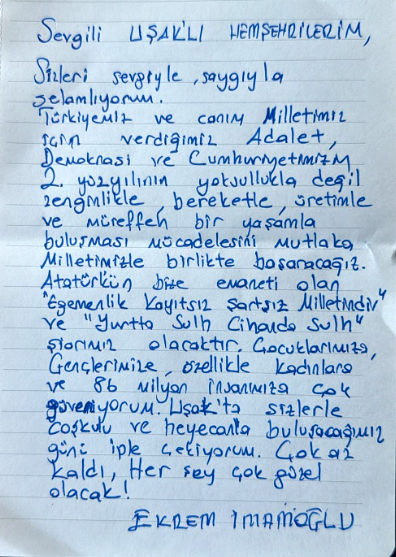 Sevgili UŞAK'LI HEMŞEHRİLERİM,
Sizleri sevgiyle, saygıyla
selamlıyorum.
Türkiyemiz ve canım Milletimiz
için verdiğimiz Adalet,
Demokrasi ve Cumhuriyetimizin
2. yüzyılının yoksullukla değil
zenginlikle, bereketle, üretimle
ve müreffeh bir yaşamla
buluşması mücadelesini mutlaka
Milletimizle birlikte başaracağız.
Atatürkün bize emaneti olan
"Egemenlik Kayıtsız Şartsız Milletindir"
ve "Yurtta Sulh Cihanda Sulh"
şiarımız olacaktır. Çocuklarımıza,
Gençlerimize, özellikle kadınlara
ve 86 milyon insanımıza çok
güveniyorum. Uşak'ta sizlerle
coşkulu ve heyecanla buluşacağımız
günü iple çekiyorum. Çok az
kaldı, Her şey çok güzel
olacak!
EKREM İMAMOĞLU